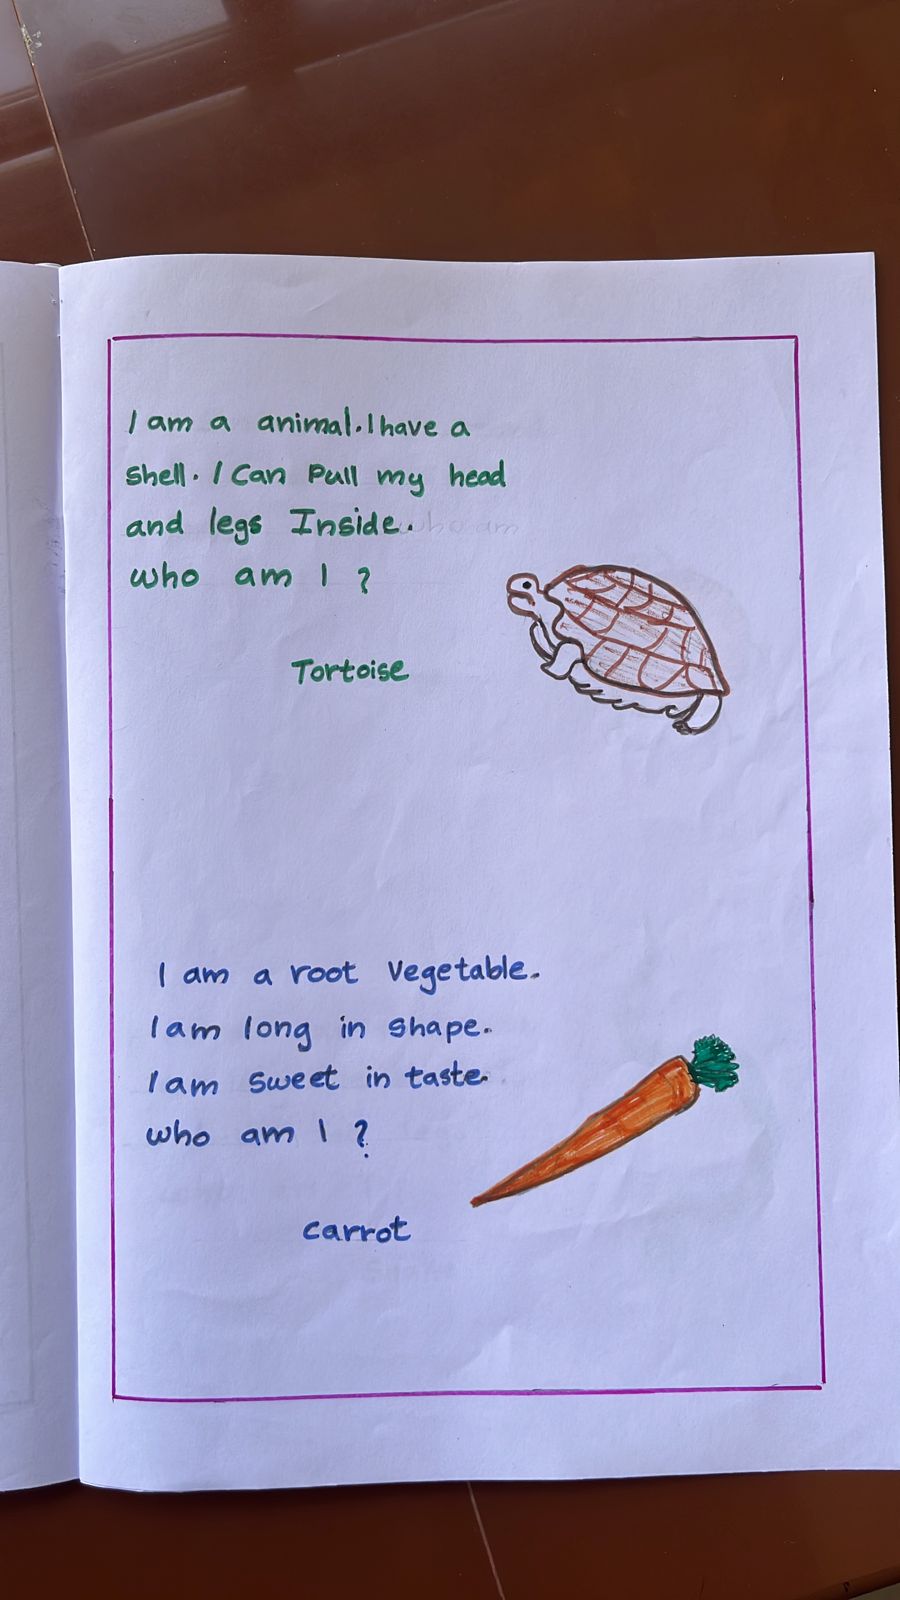 I am a animal. I have a
shell. I Can Pull my head
and legs Inside. who am
who am I ?
Tortoise
I am a root Vegetable.
I am long in shape.
I am sweet in taste.
who am I ?
carrot